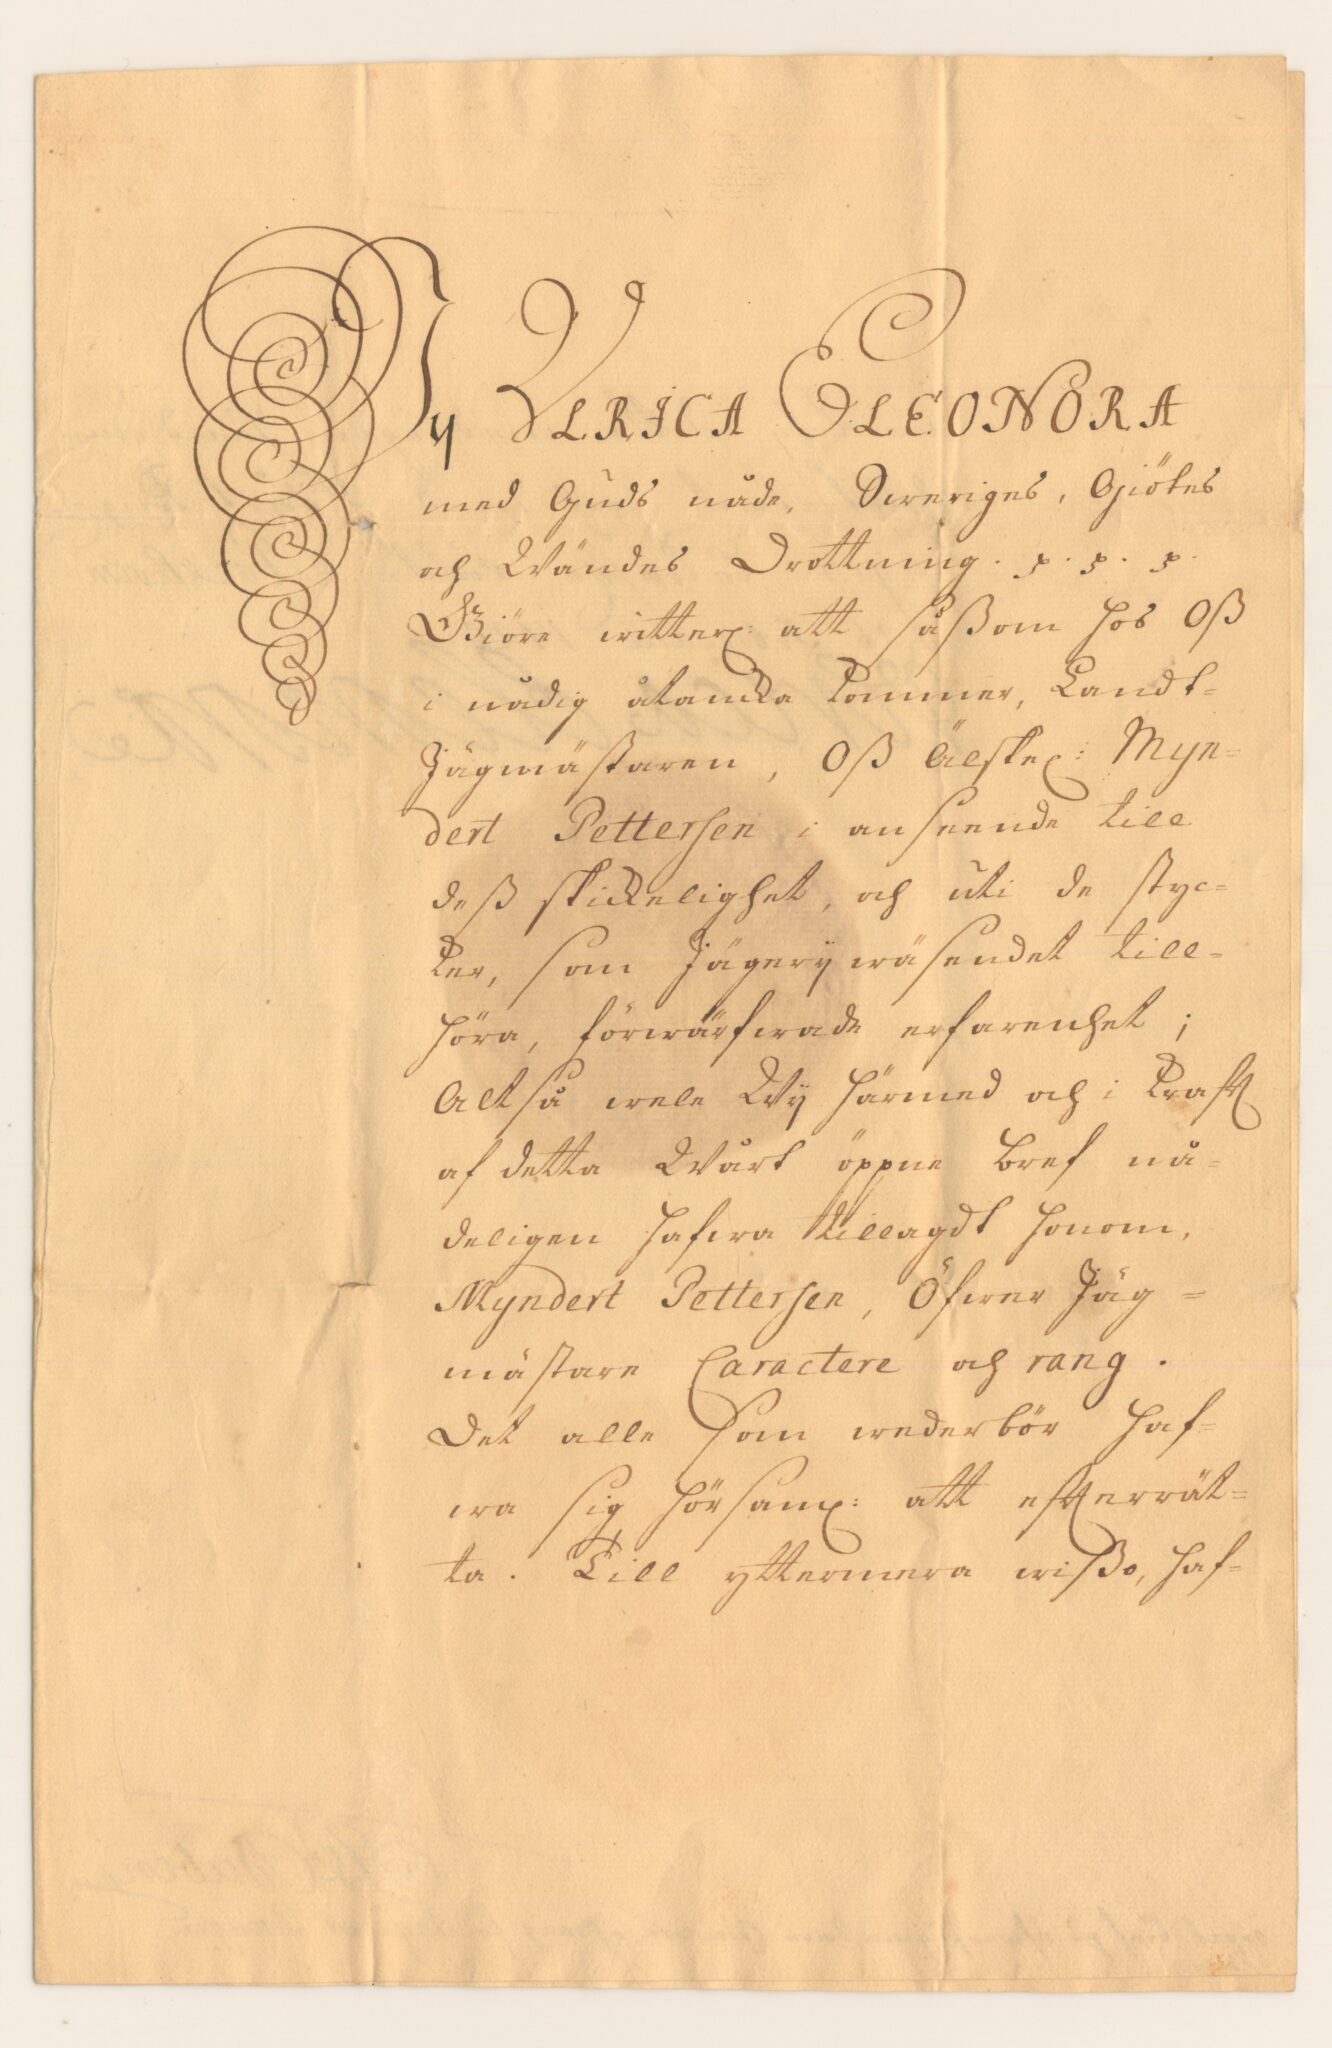 Wy ULRICA ELEONORA
med Guds nåde, Sweriges, Giötes
och Wändes Drottning. p. p. p.
Giöre witterl: att såßom hos Oß
i nådig åtancka kommer, Landt-
Jägmästaren, Oß Älskel: Myn-
dert Pettersen i anseende till
deß skickelighet, och uti de styc-
ker, som Jägerij wäsendet till-
höra, förwärfwade erfarenhet;
Altså wele Wij härmed och i krafft
af detta Wårt öppne bref nå-
deligen hafwa tillagdt honom,
Myndert Pettersen, Öfwer Jäg-
mästare Caractere och rang.
Det alle som wederbör haf-
wa sig hörsaml: att effterrät-
ta. Till yttermera wißo, haf-